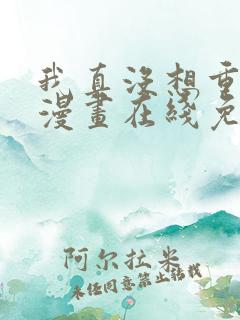 我真没想重
漫畫在綫免
阿尔拉米
未经同意禁止转载